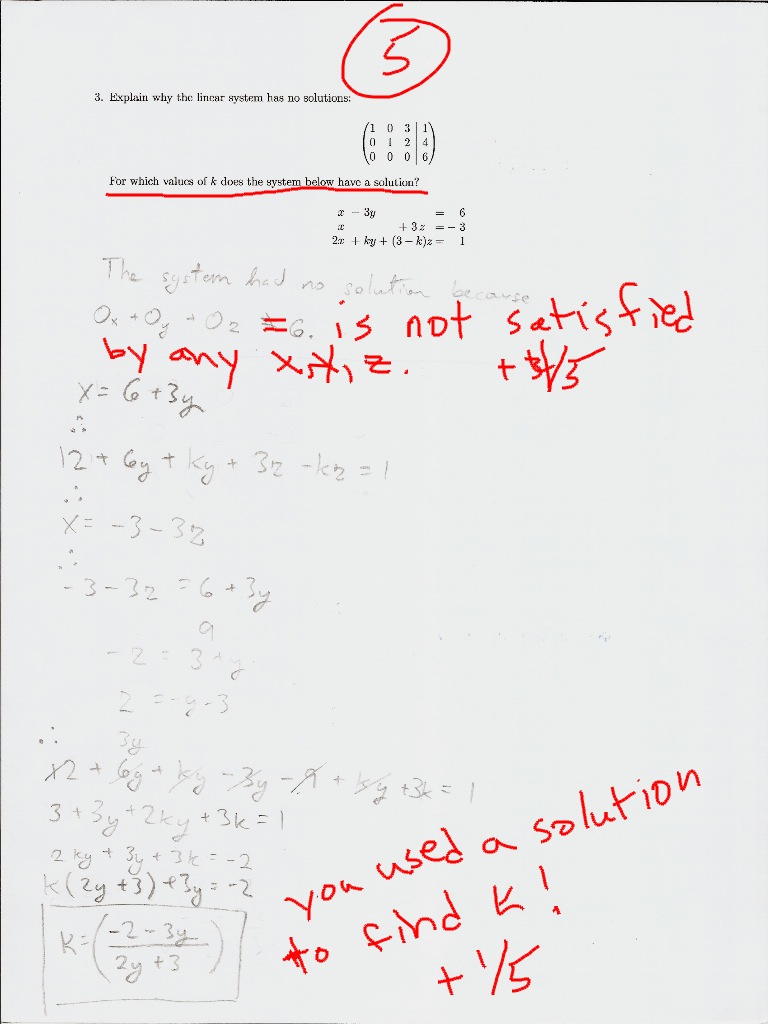 5
3. Explain why the linear system has no solutions:
1 0 3 | 1
0 1 2 | 4
0 0 0 | 6
For which values of k does the system below have a solution?
x − 3y = 6
x + 3z = − 3
2x + ky + (3 − k)z = 1
The system had no solution because
0x + 0y + 0z = 6. is not satisfied
by any x, y, z. + /5
x = 6 + 3y
∴
12 + 6y + ky + 3z - kz = 1
∴
x = -3 - 3z
∴
-3 - 3z = 6 + 3y
9
-z = 3 + y
z = -y - 3
∴ 3y
12 + 6y + ky - 3y - 9 + ky + 3k = 1
3 + 3y + 2ky + 3k = 1
2ky + 3y + 3k = -2
k(2y + 3) + 3y = -2
K = (-2 - 3y / 2y + 3)
you used a solution
to find k!
+ 1/5